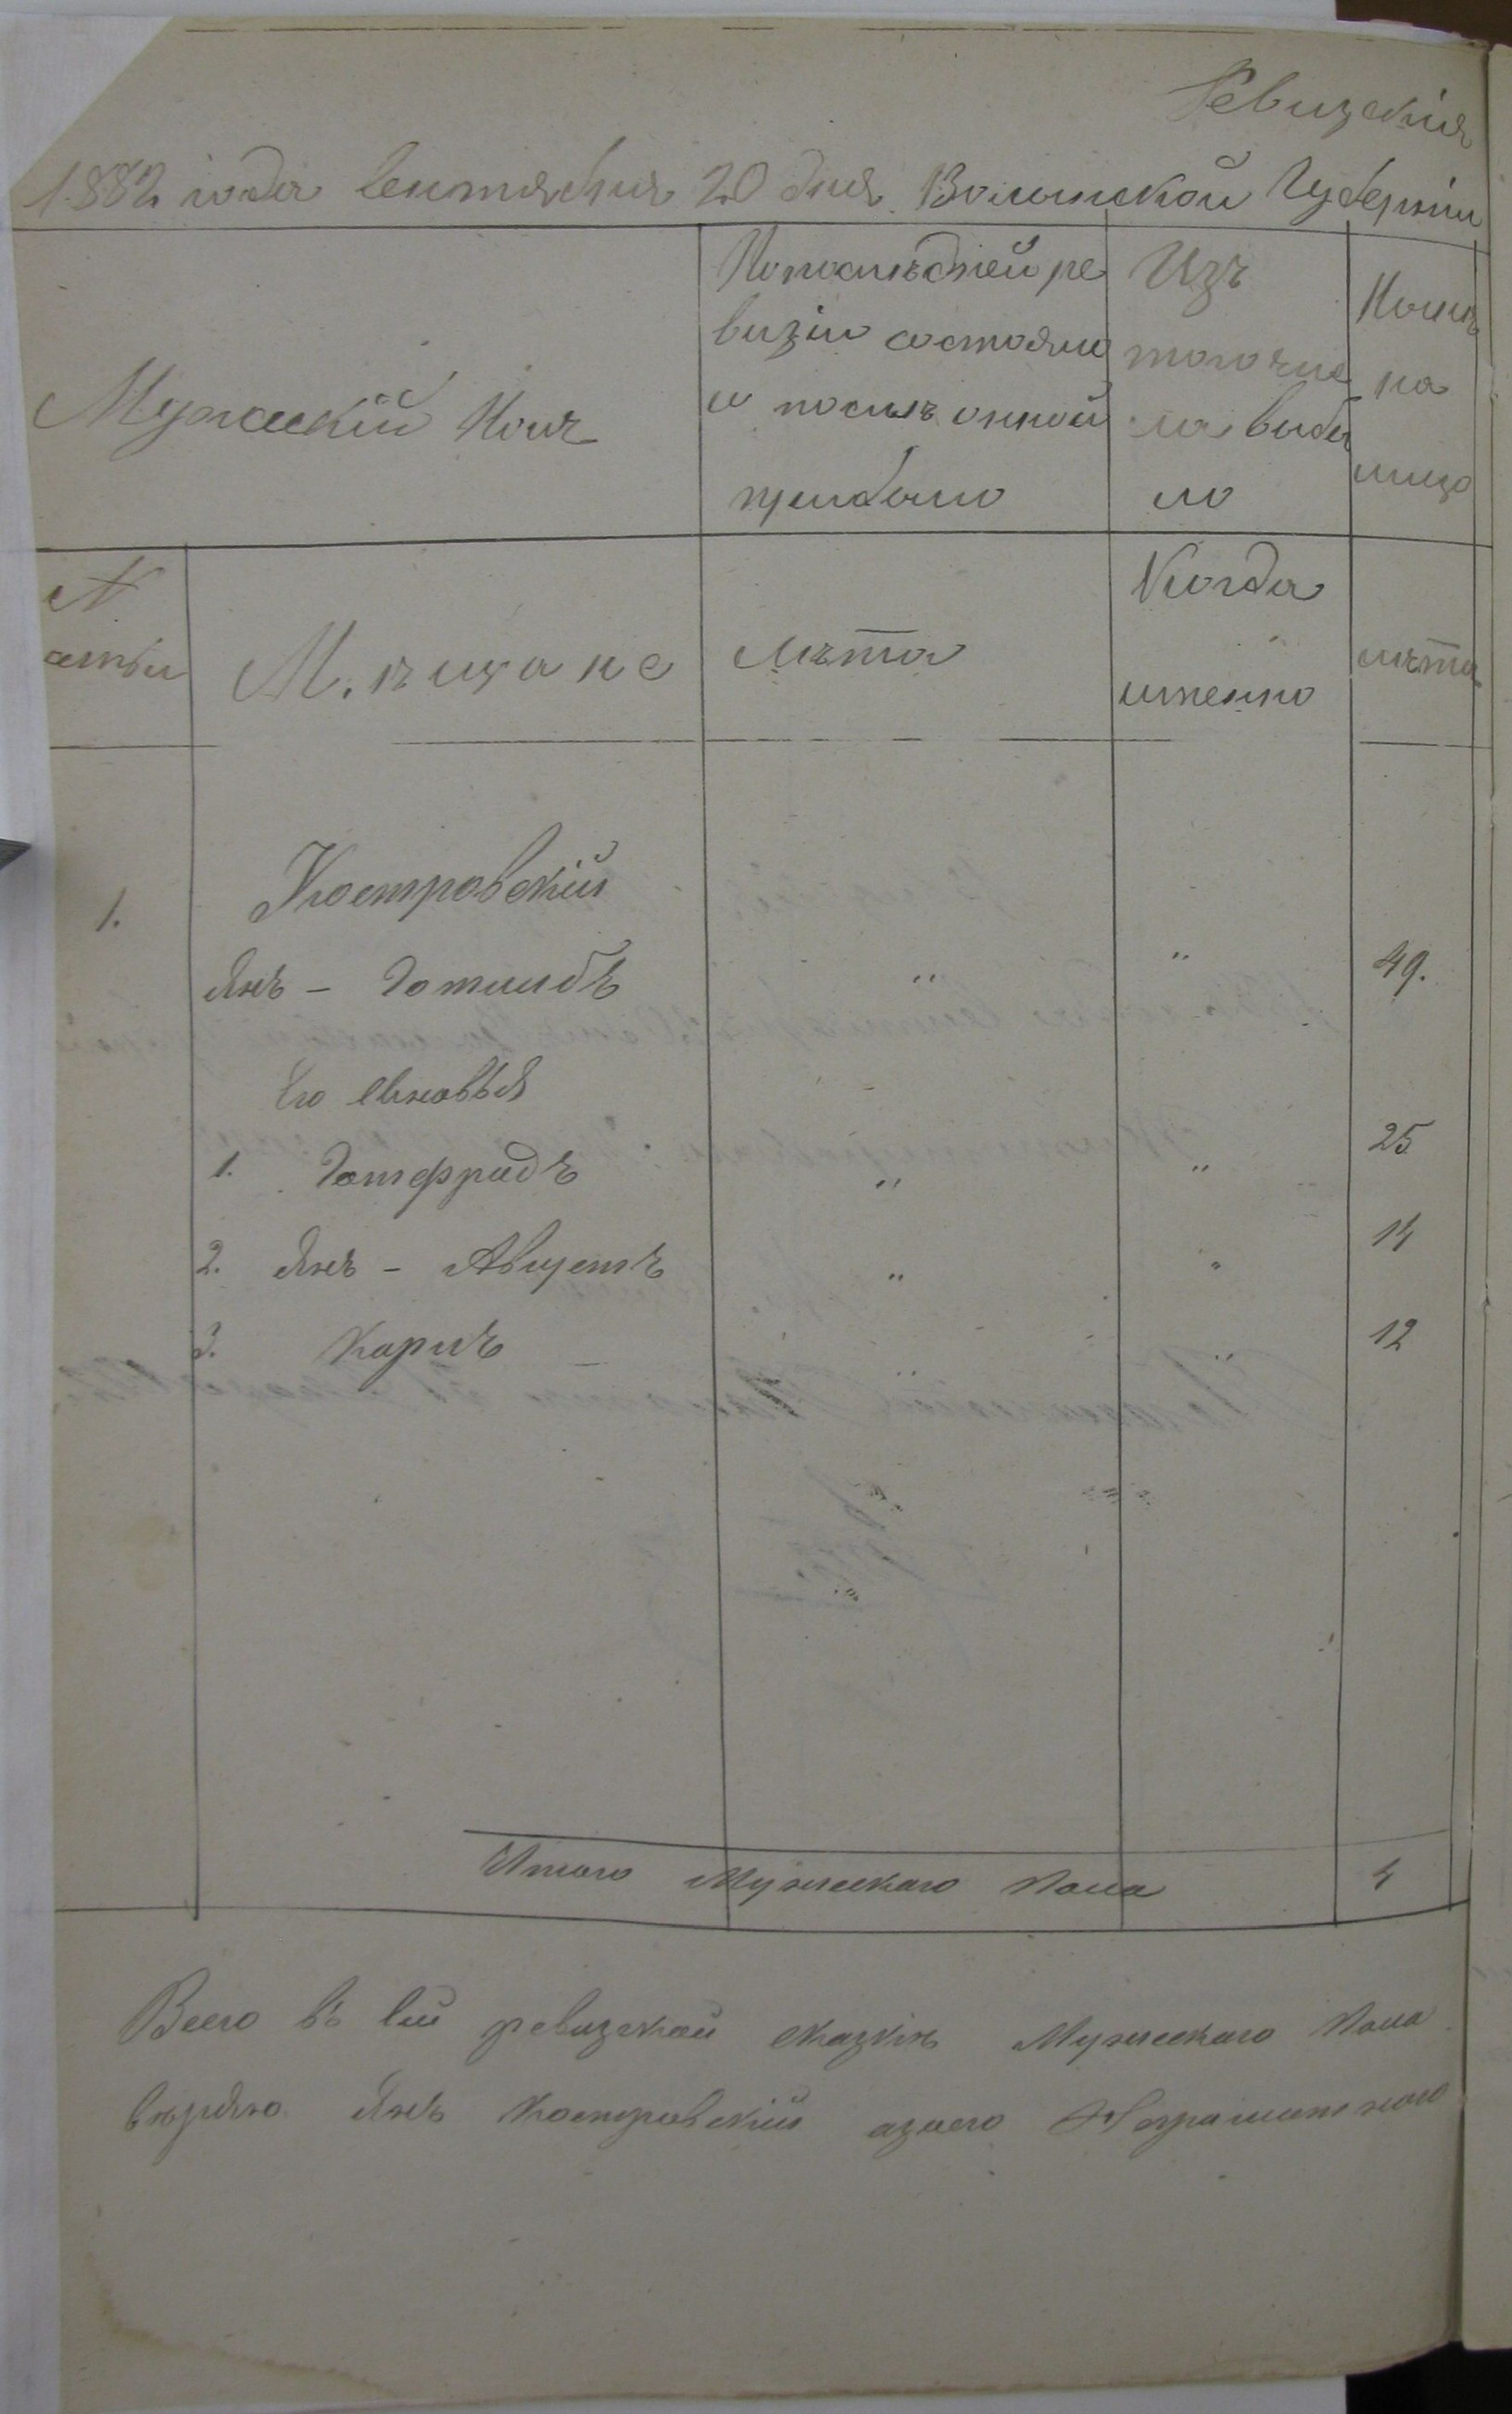 Ревизския
1882 года Сентября 20 дня Волынской Губернии
Мужский Полъ
По последней ре
визіи состояло
и послѣ онной
прибыло
Изъ
того чис
ла выбы
ло
Нынѣ
на
лицо
N
семьи
Мѣщане
лѣта
Когда
именно
лѣта
1.
Костровскій
Янъ - Готлибъ " " 49.
Его Сыновья
1. Готфридъ " " 25
2. Янъ - Августъ " " 14
3. Карлъ " " 12
Итого Мужескаго Пола 4
Всего въ сей ревизской сказкѣ Мужескаго Пола
вѣряю Янъ Костровскій азаего Неграмотного